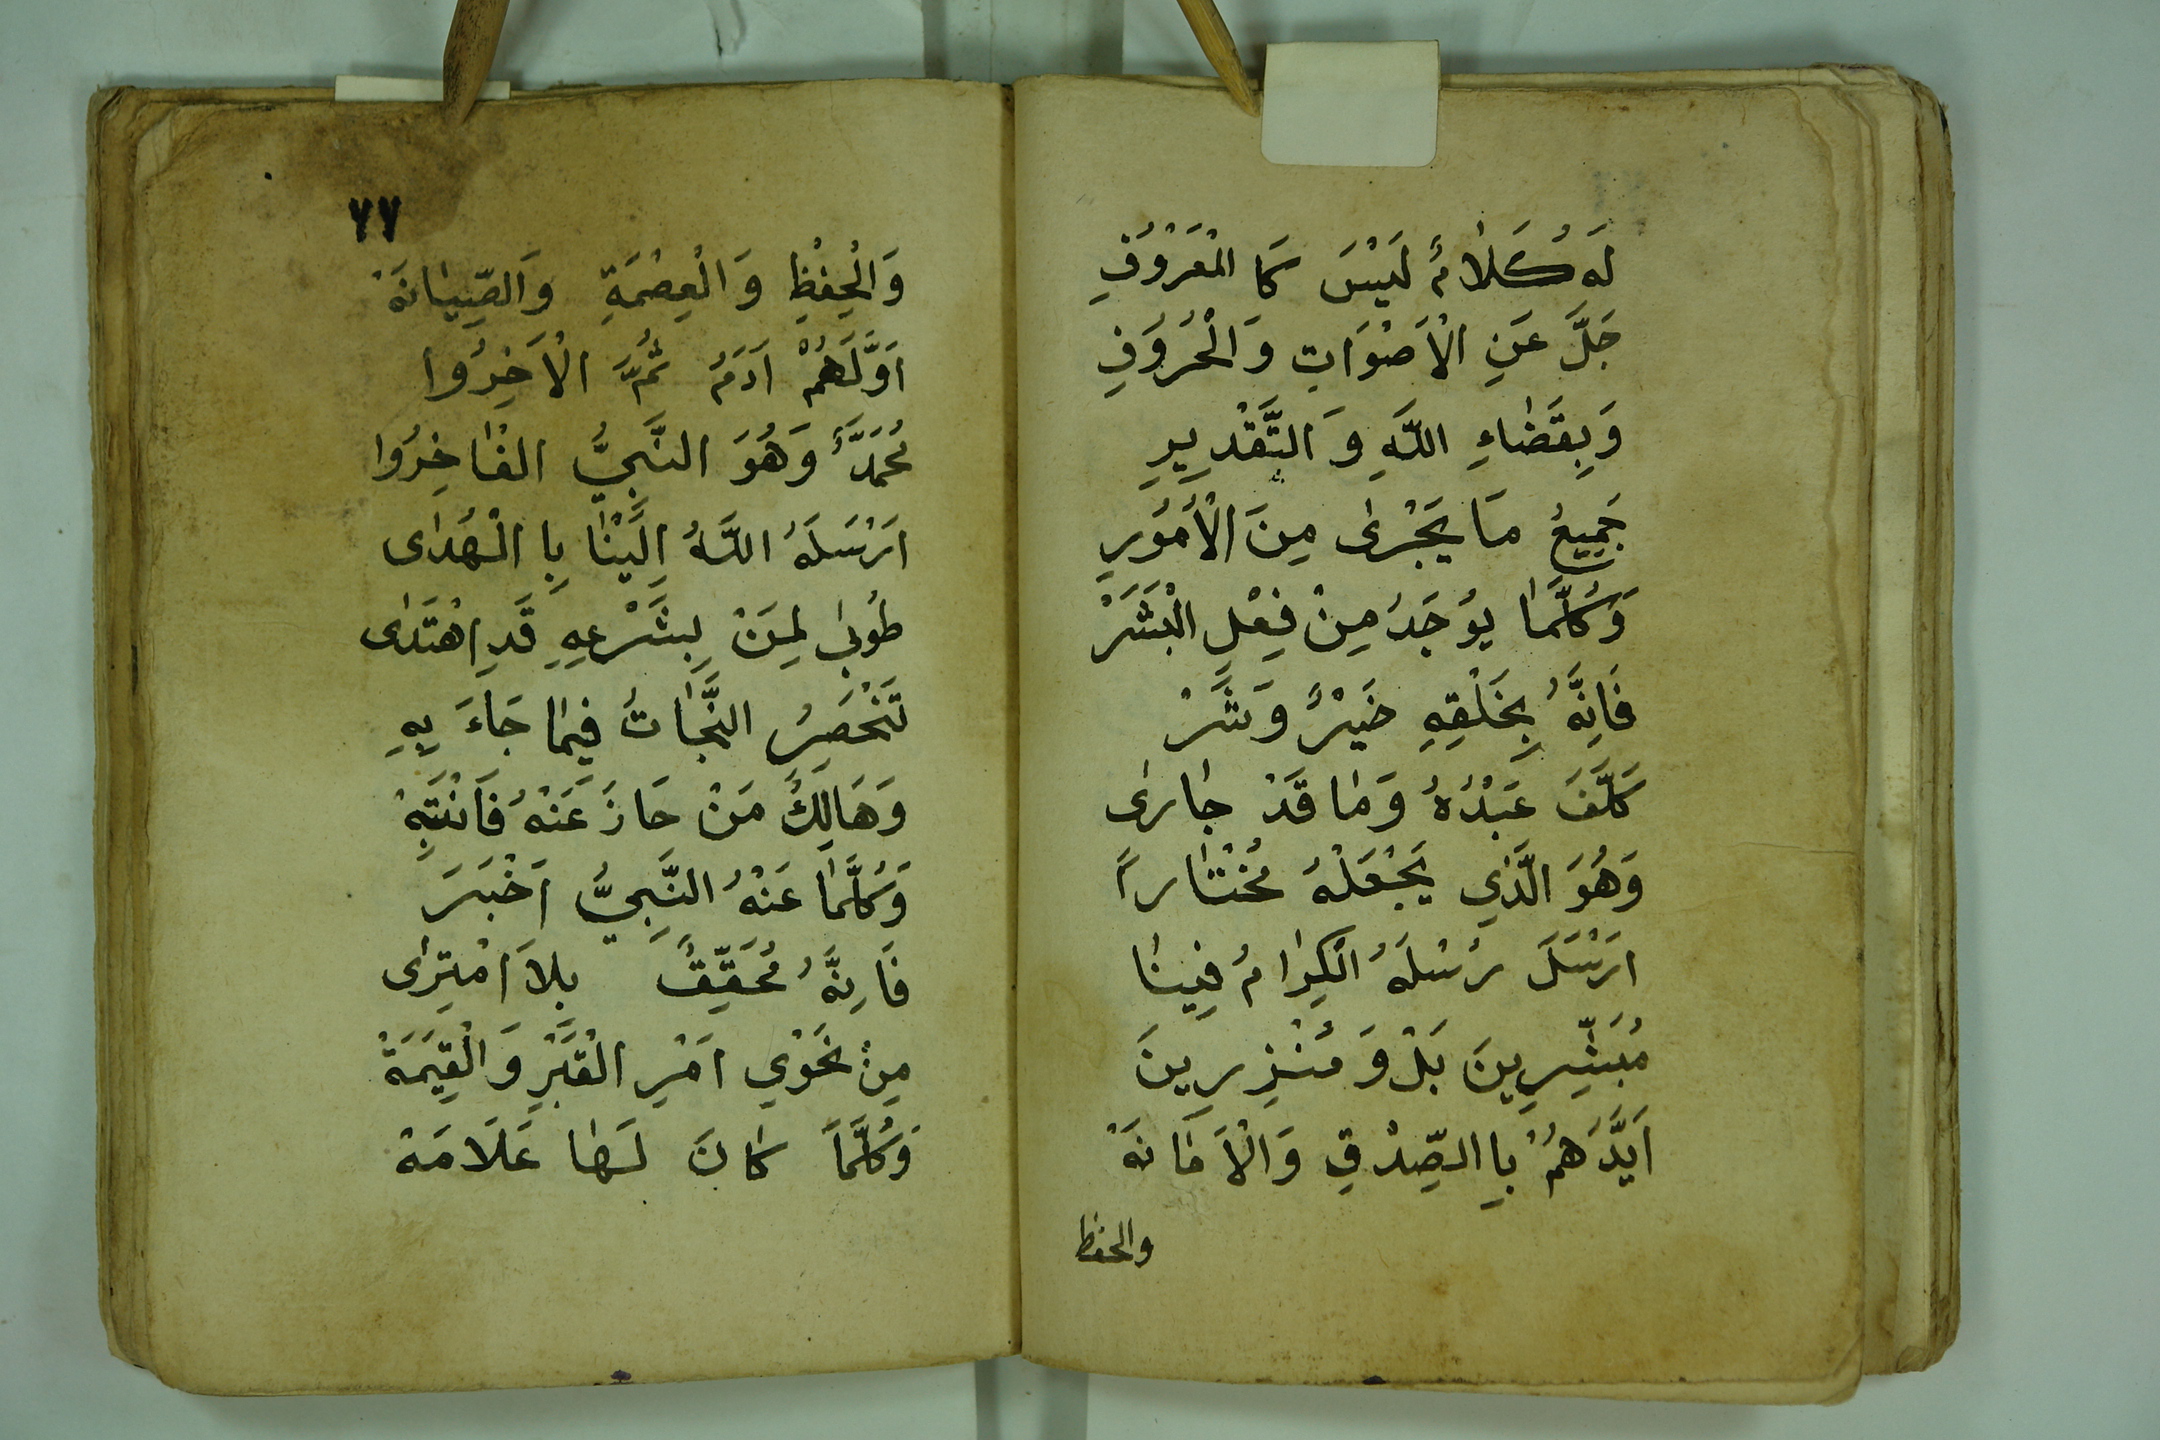 لَهُ كَلَامٌ لَيْسَ كَا الْمَعْرُوفِ
جَلَّ عَنِ الْاَصْوَاتِ وَالْحُرُوفِ
وَبِقَضَاءِ اللَّهِ وَالتَّقْدِيرِ
جَمِيعُ مَا يَجْرٰى مِنَ الْاُمُورِ
وَكُلَّمَا يُوجَدُ مِنْ فِعْلِ الْبَشَرْ
فَاِنَّهُ بِخَلْقِهِ خَيْرٌ وَشَرْ
كَلَّفَ عَبْدُهُ وَمَا قَدْ جَارٰى
وَهُوَ الَّذِي يَجْعَلْهُ مُخْتَاراً
اَرْسَلَ رُسْلَهُ الْكِرَامُ فِينَا
مُبَشِّرِينَ بَلْ وَمُنْذِرِينَ
اَيَّدَهُمْ بِاالصِّدْقِ وَالْاَمَانَةْ
والحفظ
٧٧
وَالْحِفْظِ وَالْعِصْمَةِ وَالصِّيَانَةْ
اَوَّلَهُمْ اَدَمُ ثُمَّ الْاَخِرُوا
مُحَمَّدٌ وَهُوَ النَّبِيُّ الْفَاخِرُوا
اَرْسَلَهُ اللَّهُ اِلَيْنَا بِا الْهُدٰى
طُوبٰى لِمَنْ بِشَرْعِهِ قَدِ اهْتَدٰى
تَنْحَصِرُ النَّجَاتُ فِيمَا جَاءَ بِهِ
وَهَالِكٌ مَنْ حَازَ عَنْهُ فَانْتَبِهْ
وَكُلَّمَا عَنْهُ النَّبِيُّ اَخْبَرَ
فَاِنَّهُ مُحَقِّقٌ بِلَا امْتِرٰى
مِنْ نَحْوِي اَمْرِ الْقَبْرِ وَالْقِيَمَةْ
وَكُلَّمَا كَانَ لَهَا عَلَامَةْ